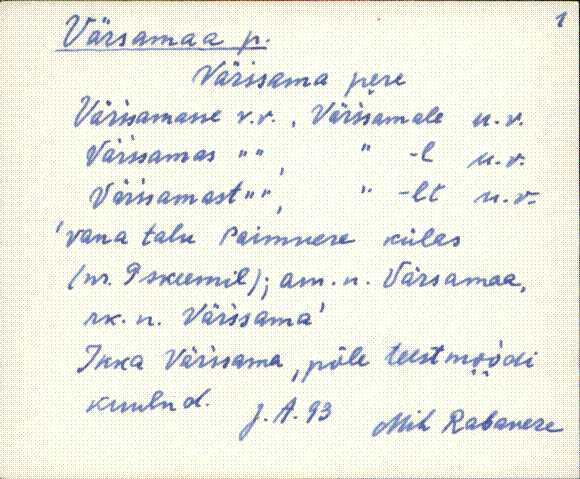 1
Värsamaa p.
Värisama pere
Värisamasse v.v., Värisamale u.v.
Värisamas " ", " -l u.v.
Värisamast " ", " -lt u.v.
'vana talu Paimvere külas
(nr. 9 skeemil); am. n. Värsamaa,
rk. n. Värisama'
Ikka Värisama, põle teestmọọdi
kuulnd.
J. A. 93 Mih Rabavere